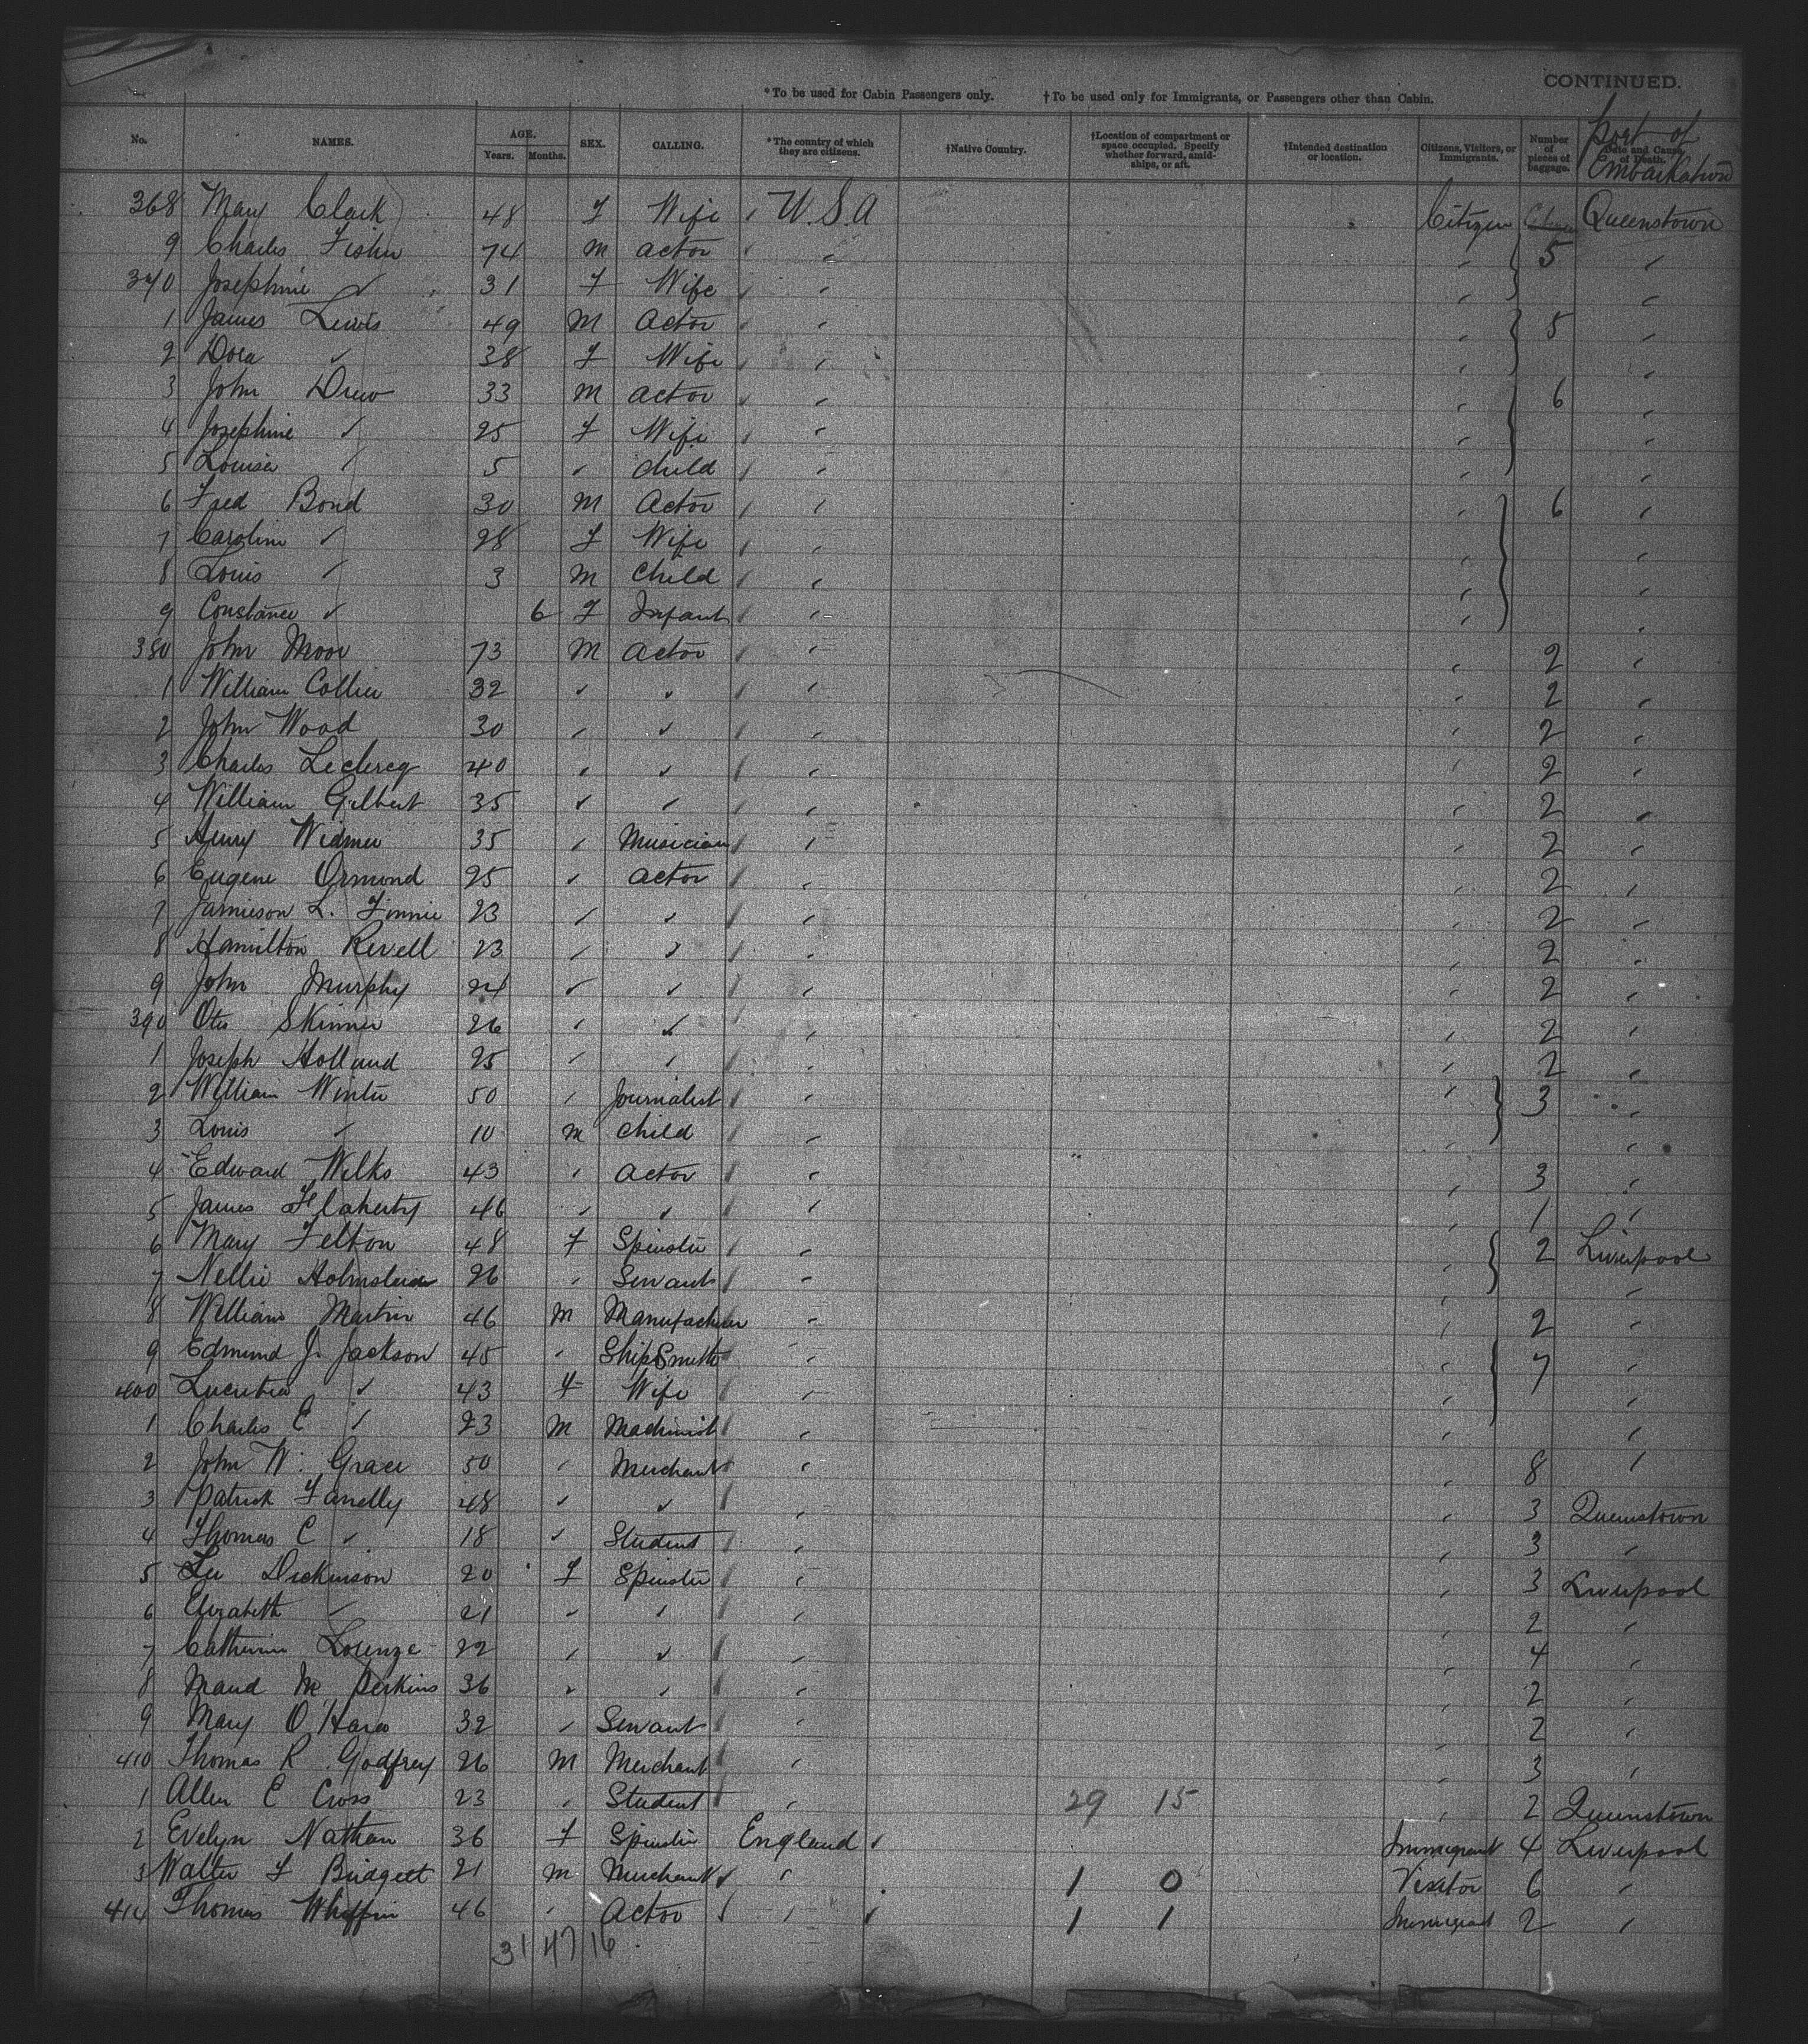 CONTINUED.
*To be used for Cabin Passengers only. †To be used only for Immigrants, or Passengers other than Cabin.
No. NAMES. AGE. Years. Months. SEX. CALLING. *The country of which they are citizens. †Native Country. †Location of compartment or space occupied. Specify whether forward, amidships, or aft. †Intended destination or location. Citizens, Visitors, or Immigrants. Number of pieces of baggage. Date and Cause of Death. Port of Embarkation
368 Mary Clark 48 F Wife U.S.A Citizen Queenstown
9 Charles Fisher 74 M Actor " " 5 "
370 Josephine " 31 F Wife " " "
1 James Lewis 49 M Actor " " 5 "
2 Dora " 38 F Wife " " "
3 John Drew 33 M Actor " " 6 "
4 Josephine " 25 F Wife " " "
5 Louisa " 5 " Child " " "
6 Fred Bond 30 M Actor " " 6 "
7 Caroline " 28 F Wife " " "
8 Louis " 3 M Child " " "
9 Constance " 6 F Infant " " "
380 John Moor 73 M Actor " " 2 "
1 William Collier 32 " " " " 2 "
2 John Wood 30 " " " " 2 "
3 Charles Leclercq 40 " " " " 2 "
4 William Gilbert 35 " " " " 2 "
5 Henry Widmer 35 " Musician " " 2 "
6 Eugene Ormond 25 " Actor " " 2 "
7 Jamieson L. Finnie 23 " " " " 2 "
8 Hamilton Revell 23 " " " " 2 "
9 John Murphy 24 " " " " 2 "
390 Otis Skinner 26 " " " " 2 "
1 Joseph Holland 25 " " " " 2 "
2 William Winter 50 " Journalist " " 3 "
3 Louis " 10 M Child " " "
4 Edward Wilks 43 " Actor " " 3 "
5 James Flaherty 46 " " " " 1 "
6 Mary Felton 48 F Spinster " " 2 Liverpool
7 Nellie 26 " Servant " " "
8 William Martin 46 M Manufacturer " " 2 "
9 Edmund J. Jackson 45 " Ship Smith " " 7 "
400 Lucretia " 43 F Wife " " "
1 Charles C " 23 M Machinist " " "
2 John W. Grace 50 " Merchant " " 8 "
3 Patrick Fanelly 48 " " " " 3 Queenstown
4 Thomas C " 18 " Student " " 3 "
5 Lee Dickinson 20 F Spinster " " 3 Liverpool
6 Elizabeth " 21 " " " " 2 "
7 Catherine Lorenze 22 " " " " 4 "
8 Maud M Perkins 36 " " " " 2 "
9 Mary O'Hara 32 " Servant " " 2 "
410 Thomas R. Godfrey 26 M Merchant " " 3 "
1 Allen C Cross 23 " Student " 29 15 " 2 Queenstown
2 Evelyn Nathan 36 F Spinster England Immigrant 4 Liverpool
3 Walter F Bridgett 21 M Merchant " 1 0 Visitor 6 "
414 Thomas Whiffin 46 " Actor " 1 1 Immigrant 2 "
31 47 16